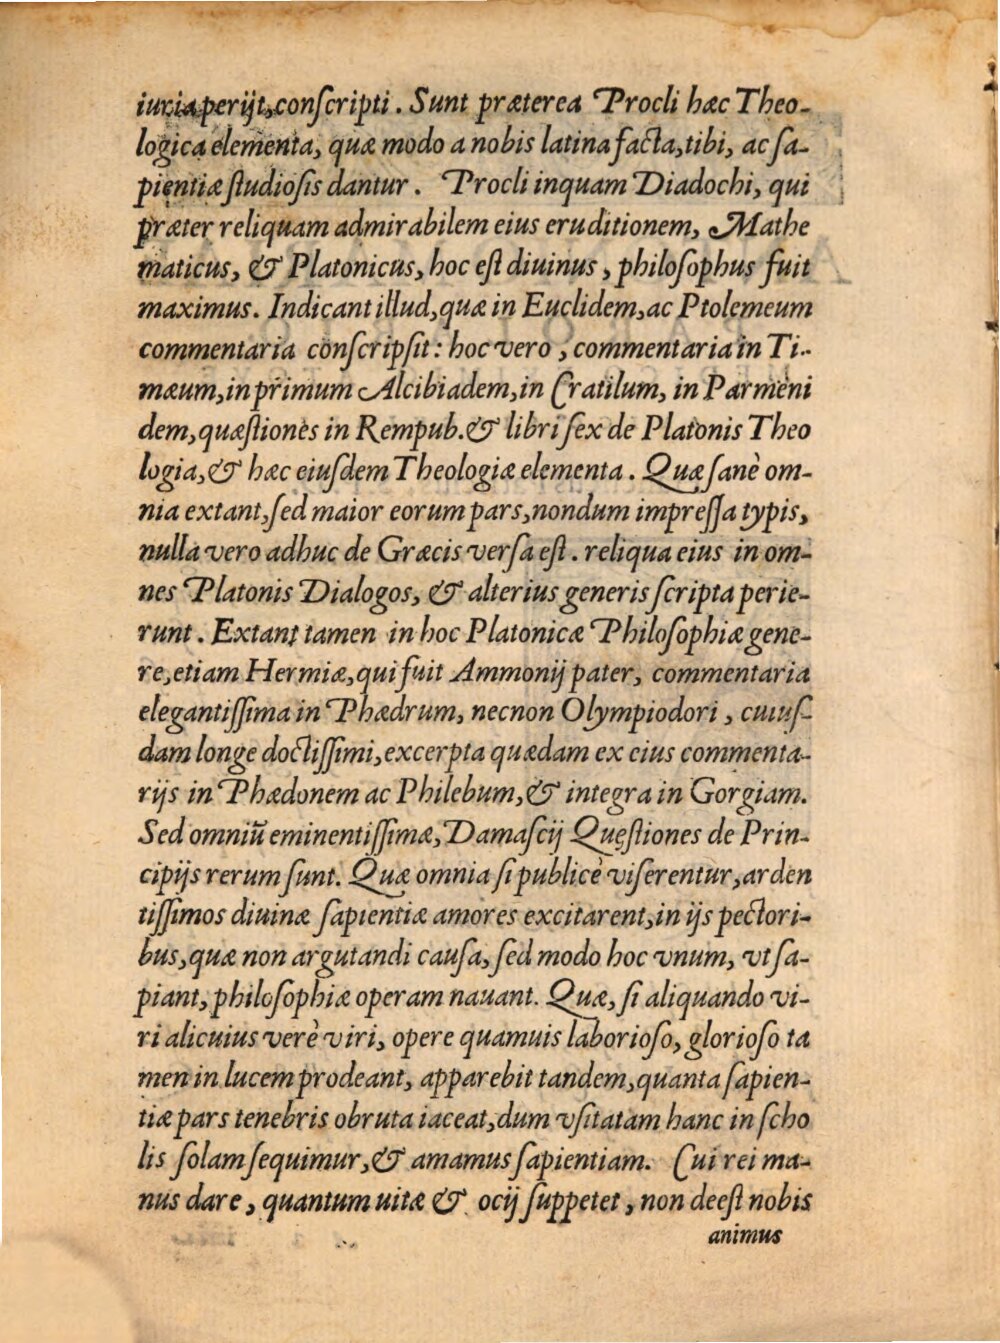 iuria perijt, conſcripti. Sunt præterea Procli hæc Theo-
logica elementa, quæ modo a nobis latina facta, tibi, ac ſa-
pientiæ ſtudioſis dantur. Procli inquam Diadochi, qui
præter reliquam admirabilem eius eruditionem, Mathe
maticus, & Platonicus, hoc eſt diuinus, philoſophus fuit
maximus. Indicant illud, quæ in Euclidem, ac Ptolemeum
commentaria conſcripſit: hoc vero, commentaria in Ti-
mæum, in primum Alcibiadem, in Cratilum, in Parmeni
dem, quæſtiones in Rempub. & libri ſex de Platonis Theo
logia, & hæc eiuſdem Theologiæ elementa. Quæ ſanè om-
nia extant, ſed maior eorum pars, nondum impreſſa typis,
nulla vero adhuc de Græcis verſa eſt. reliqua eius in om-
nes Platonis Dialogos, & alterius generis ſcripta perie-
runt. Extant tamen in hoc Platonicæ Philoſophiæ gene-
re, etiam Hermiæ, qui fuit Ammonij pater, commentaria
elegantiſſima in Phædrum, necnon Olympiodori, cuiuſ-
dam longe doctiſſimi, excerpta quædam ex eius commenta-
rijs in Phædonem ac Philebum, & integra in Gorgiam.
Sed omniũ eminentiſſimæ, Damaſcij Quęſtiones de Prin-
cipijs rerum ſunt. Quæ omnia ſi publicè viſerentur, arden
tiſſimos diuinæ ſapientiæ amores excitarent, in ijs pectori-
bus, quæ non argutandi cauſa, ſed modo hoc vnum, vt ſa-
piant, philoſophiæ operam nauant. Quæ, ſi aliquando vi-
ri alicuius verè viri, opere quamuis laborioſo, glorioſo ta
men in lucem prodeant, apparebit tandem, quanta ſapien-
tiæ pars tenebris obruta iaceat, dum vſitatam hanc in ſcho
lis ſolam ſequimur, & amamus ſapientiam. Cui rei ma-
nus dare, quantum uitæ & ocij ſuppetet, non deeſt nobis
animus